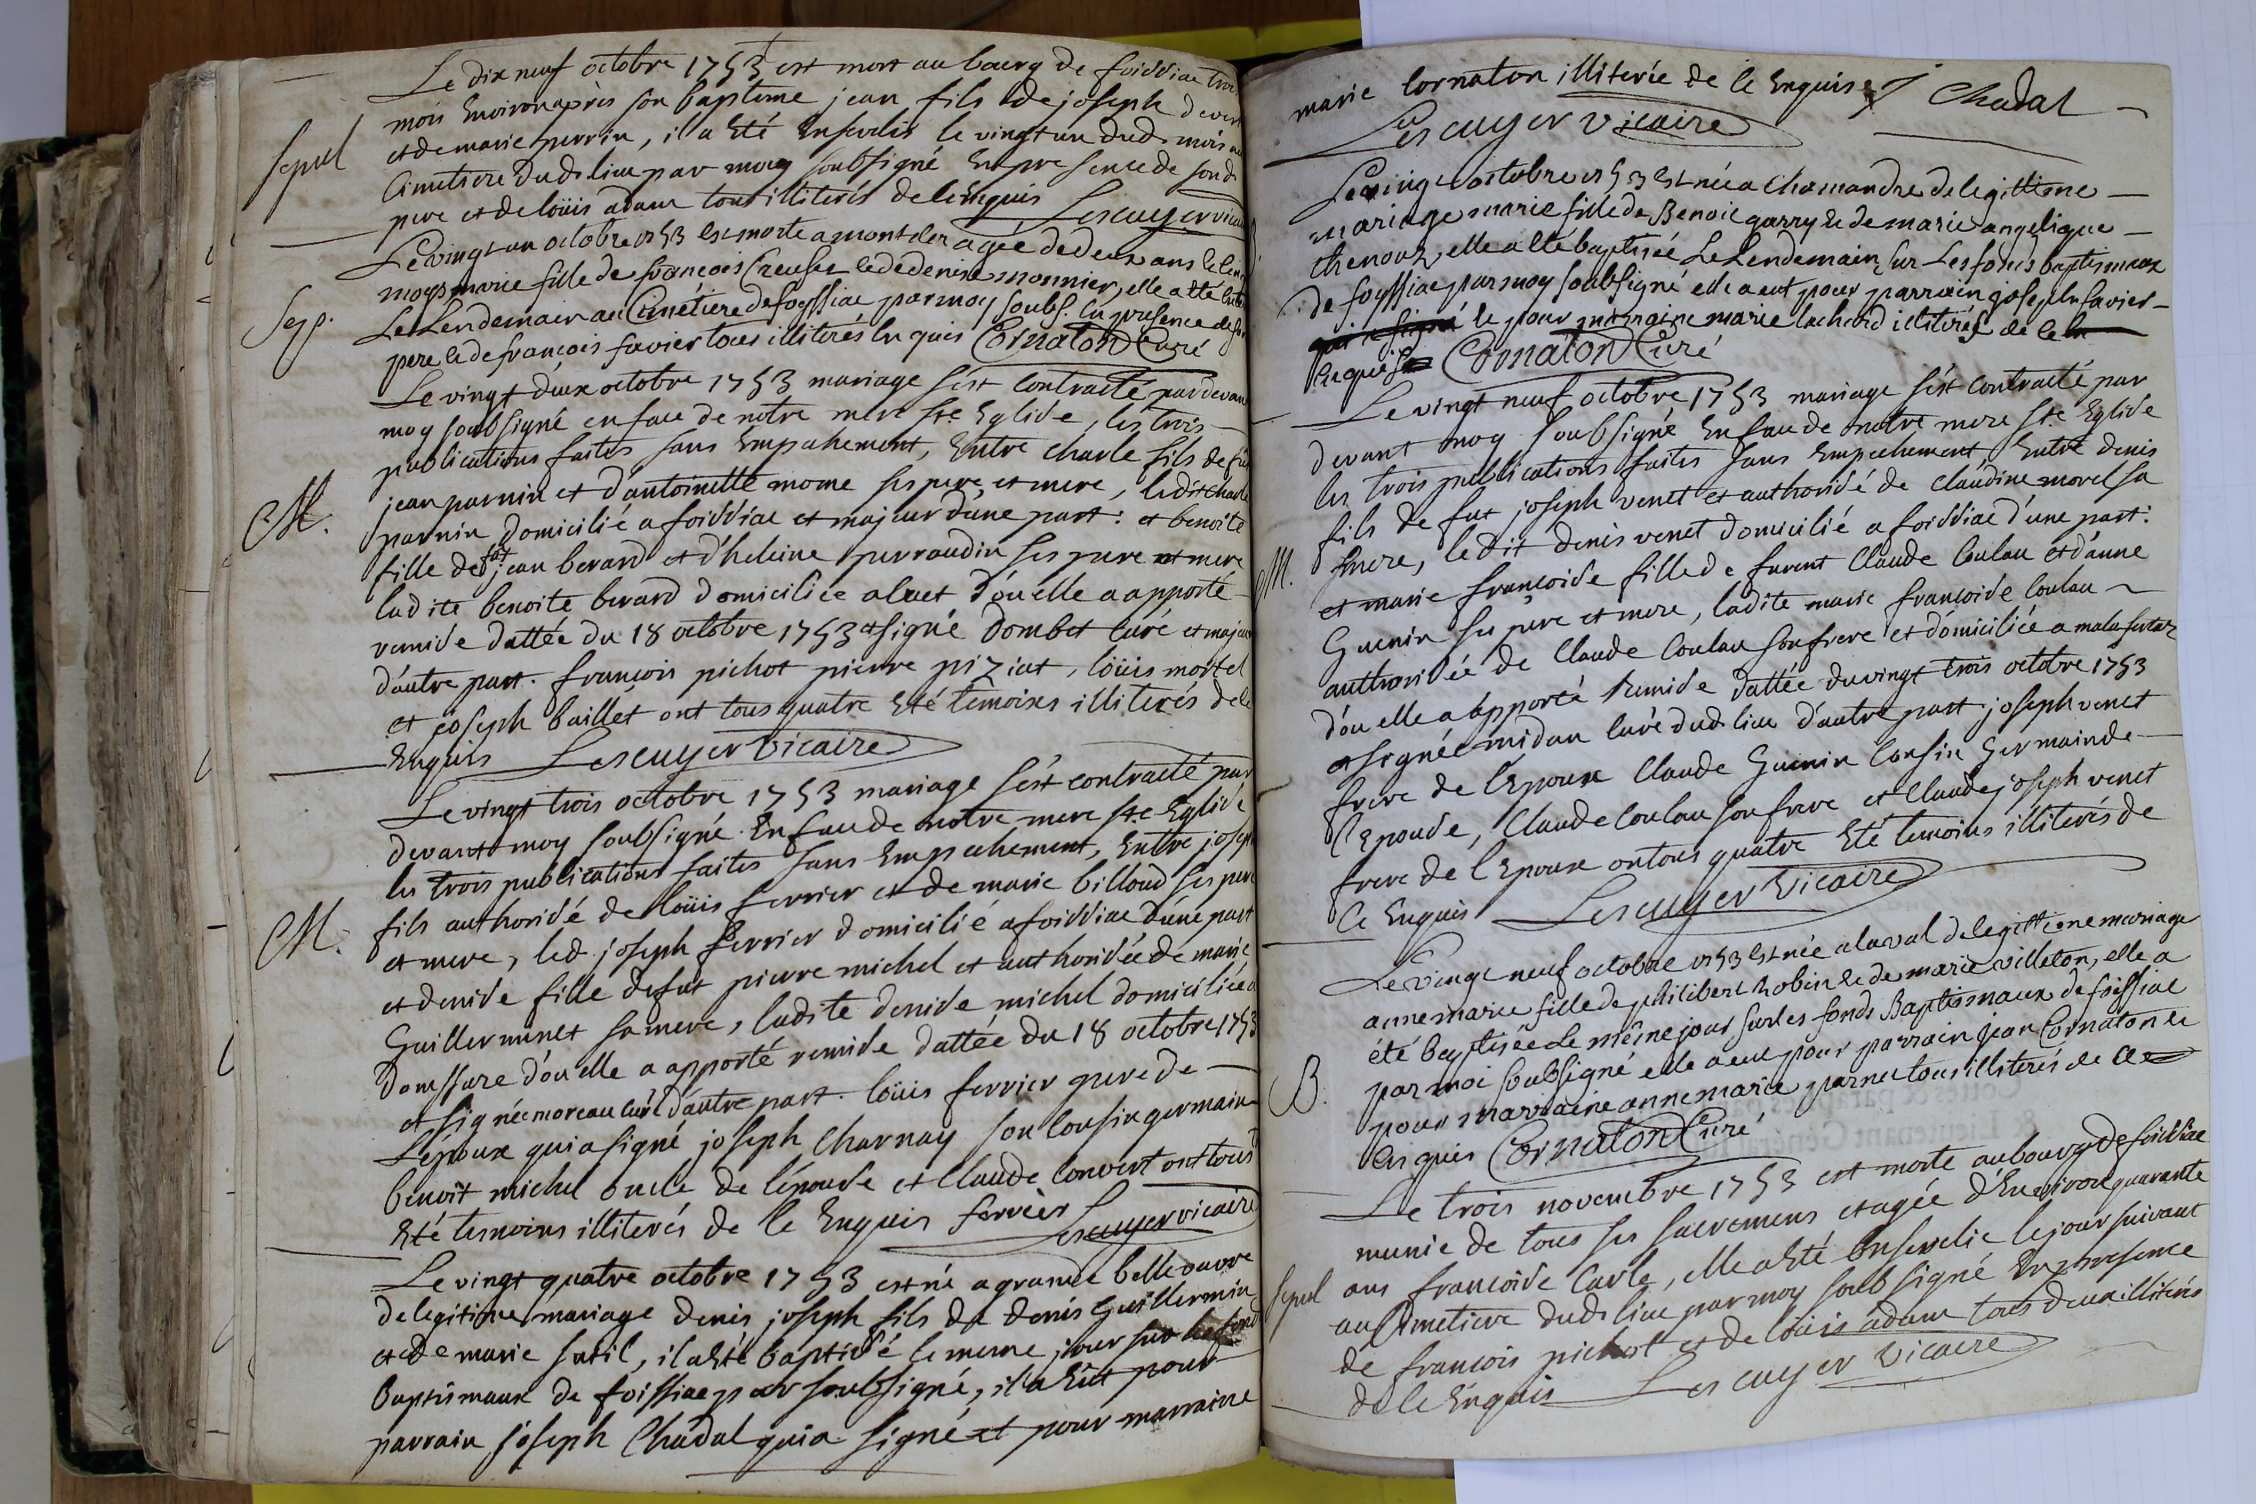 Le dix neuf octobre 1753 est mort au bourg de foissiac trois
mois Environ après son bapteme jean fils de joseph
et de marie perrin, il a Eté Enseveli le vingt un dud. mois au
Sepul
Cimetiere dud. lieu par moy soubsigné En presence de sond.
pere et de loüis adam tous illiterés de le Enquis Lescuyer vicaire
Le vingt un octobre 1753 est morte a montcler agée de deux ans
moys marie fille de françois Creuset & de denise monnier, elle a eté
Sep.
Le Lendemain au Cimétiere de foyssiac par moy soubs. En presence de son
pere & de françois favier tous illiterés Enquis Cornaton Curé
Le vingt deux octobre 1753 mariage s'est Contracté par devant
moy soubsigné en face de notre mere ste Eglise, les trois
publications faites sans Empechement, Entre charle fils de fut
jean parnin et d'antoinette mome ses pere et mere, ledit charle
M.
parnin domicilié a foissiac et majeur d'une part: et benoite
fille de fut jean berard et d'heleine perraudin ses pere et mere
ladite benoite berard domiciliée a d'ou elle a apporté
remise dattée du 18 octobre 1753 et signé Dombet Curé et majeure
d'autre part. françois pichot pierre piziat, loüis mortel
et joseph baillet ont tous quatre Eté temoins illiterés de le
Enquis Lescuyer vicaire
Le vingt trois octobre 1753 mariage s'est contracté par
devant moy soubsigné En face de notre mere ste Eglise
les trois publications faites sans Empechement, Entre joseph
fils authorisé de loüis ferrier et de marie billoud ses pere
M.
et mere, led. joseph ferrier domicilié a foissiac d'une part
et denise fille de fut pierre michel et authorisée de marie
Guillerminet sa mere, ladite denise michel domiciliée a
Domssure d'ou elle a apporté remise dattée du 18 octobre 1753
et signée moreau curé d'autre part. loüis ferrier pere de
L'époux qui a signé joseph Charnay son Cousin germain
benoit michel oncle de l'épouse et Claude Convert ont tous
Eté temoins illiterés de le Enquis ferrier Lescuyer vicaire
Le vingt quatre octobre 1753 est né a grand
de legitime mariage denis joseph fils de denis Guillermin
et de marie sutil, il a Eté baptisé le meme jour sur les fonds
Baptismaux de foissiac par soubsigné, il a Eut pour
parrain joseph Chadal qui a signé et pour marraine
marie Cornaton illiterée de le Enquise J Chadal
Lescuyer vicaire
Le vingt octobre 1753 est née a Chamandre de legittime
mariage marie fille de Benoit garry & de marie angelique
thenoux, elle a eté baptisée Le Lendemain sur Les fonds baptismaux
de foyssiac par moy soubsigné elle a eut pour parrain joseph favier
qui a signé & pour marraine marie lachard illiterés de ce
Enquis Cornaton Curé
Le vingt neuf octobre 1753 mariage s'est contracté par
devant moy soubsigné En face de notre mere ste Eglise
les trois publications faites sans Empechement, Entre denis
fils de fut joseph venet et authorisé de claudine morel sa
M.
mere, ledit denis venet domicilié a foissiac d'une part:
et marie françoise fille de furent Claude Coulau et d'anne
Guenin ses pere et mere, ladite marie françoise Coulau
authorisée de Claude Coulau son frere et domiciliée a malafretaz
d'ou elle a apporté remise dattée du vingt trois octobre 1753
et signée midan Curé dud. lieu d'autre part. joseph venet
frere de l'Epoux Claude Guenin Cousin Germain de
l'Epouse, Claude Coulau son frere et Claude joseph venet
frere de l'Epoux on tous quatre Eté temoins illiterés de
le Enquis Lescuyer vicaire
Le vingt neuf octobre 1753 est née a laval de legittime mariage
anne marie fille de philibert robin & de marie villeton, elle a
été baptisée Le même jour sur les fonds Baptismaux de foissiac
B.
par moi soubsigné elle a eut pour parrain jean Cornaton &
pour marraine anne marie parnet tous illiterés de ce
Enquis Cornaton Curé
Le trois novembre 1753 est morte au bourg de foissiac
munie de tous ses sacremens et agée d'Environ quarante
Sepul
ans françoise Carle, elle a Eté Ensevelie le jour suivant
au Cimetiere dud. lieu par moy soubsigné En presence
de françois pichot et de loüis adam tous deux illiterés
de le Enquis Lescuyer vicaire